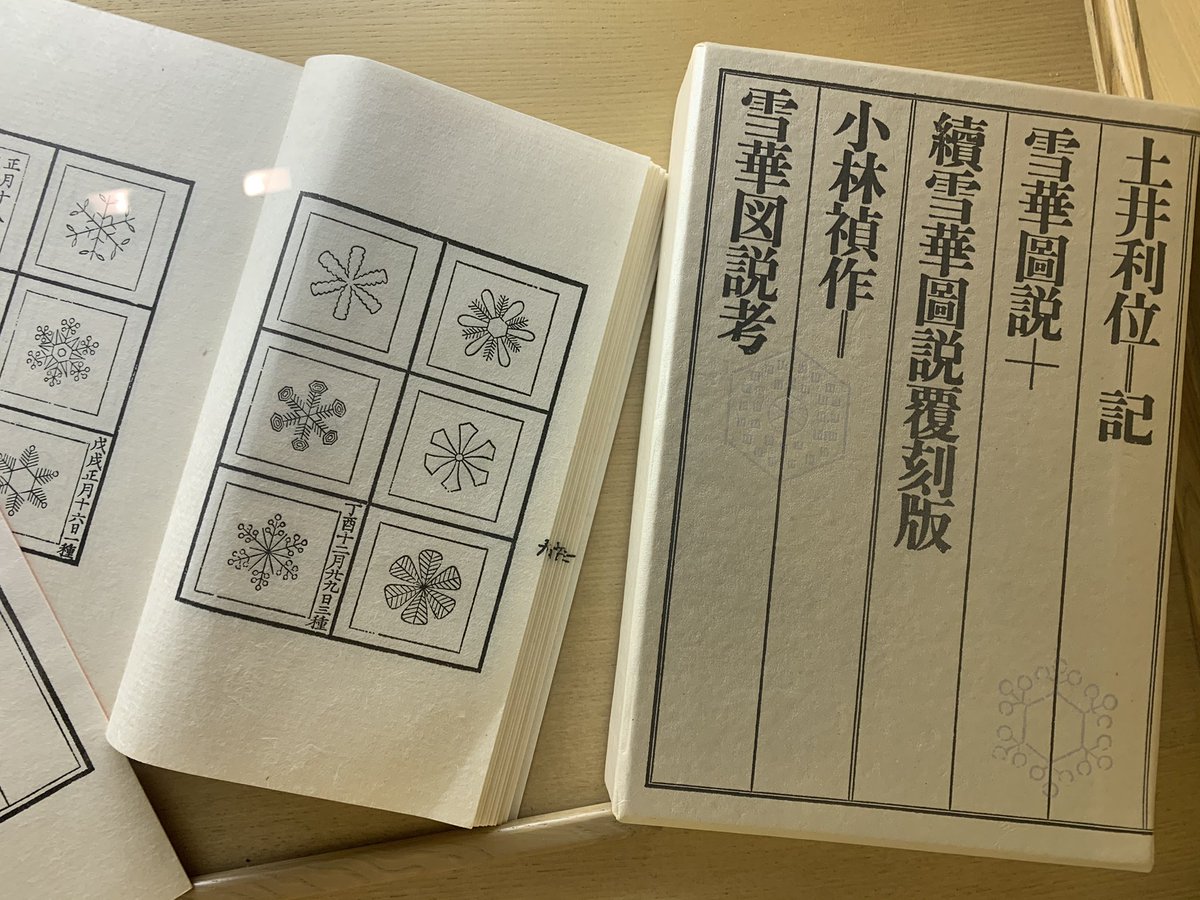 土井利位—記
雪華圖説＋
續雪華圖説覆刻版
小林禎作—
雪華図説考
丁酉十二月廿九日三種
戊戌正月十六日一種